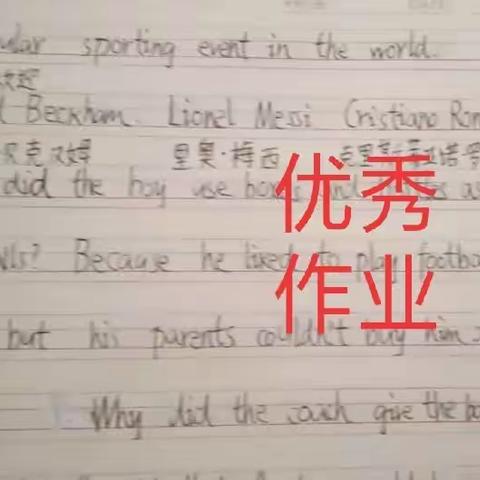 ular sporting event in the world.
Beckham. Lionel Messi Cristiano Ron
贝克汉姆 里奥·梅西 克里斯
did the boy use boxes as
lls? Because he liked to play footba
but his parents couldn't buy him
Why did the coach give the bo
优秀
作业